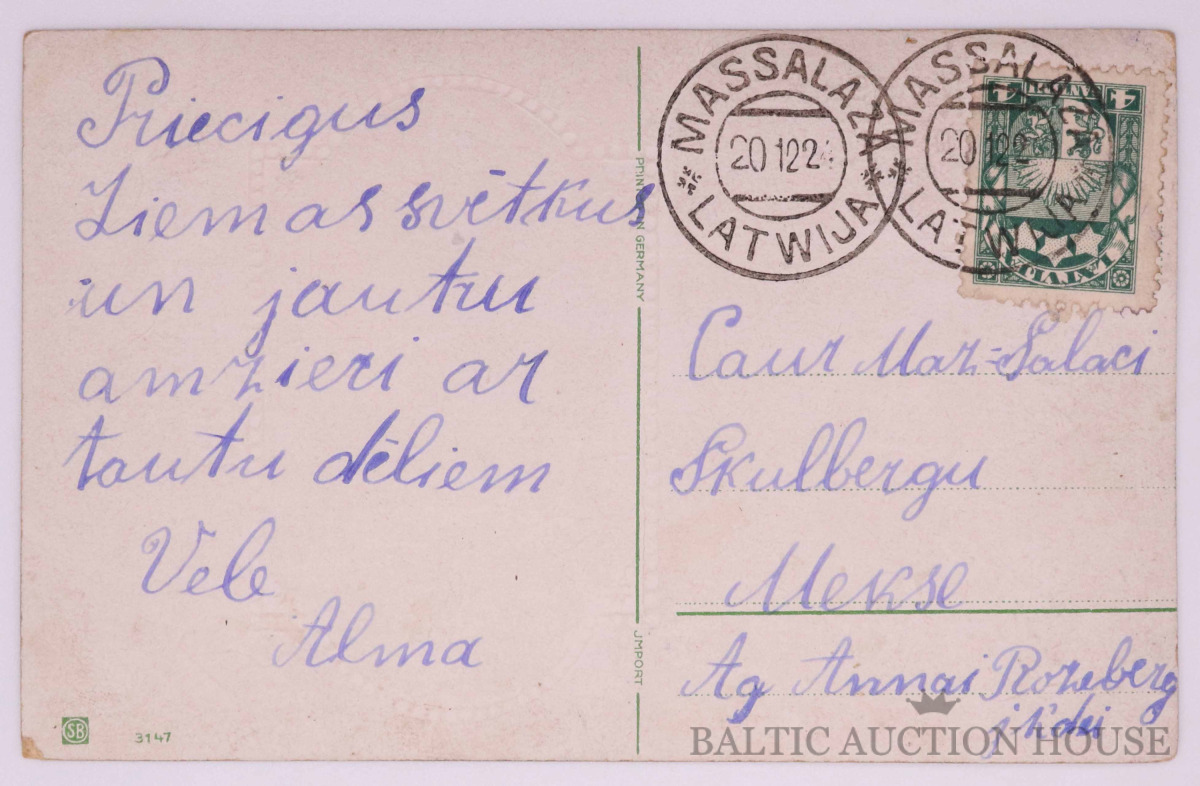 Priecigus
Ziemassvētkus
un jautru
amzieri ar
tautu dēliem
Vēle
Alma
SB
3147
PRINTED IN GERMANY
JMPORT
MASSALAZA
20 12 24
LATWIJA
MASSALAZA
20 12 2
LATW
4 4
LATVIJA
Caur Maz=Salaci
Skulbergu
Mekse
Ag Annai Rozeberg
jk'dei
BALTIC AUCTION HOUSE